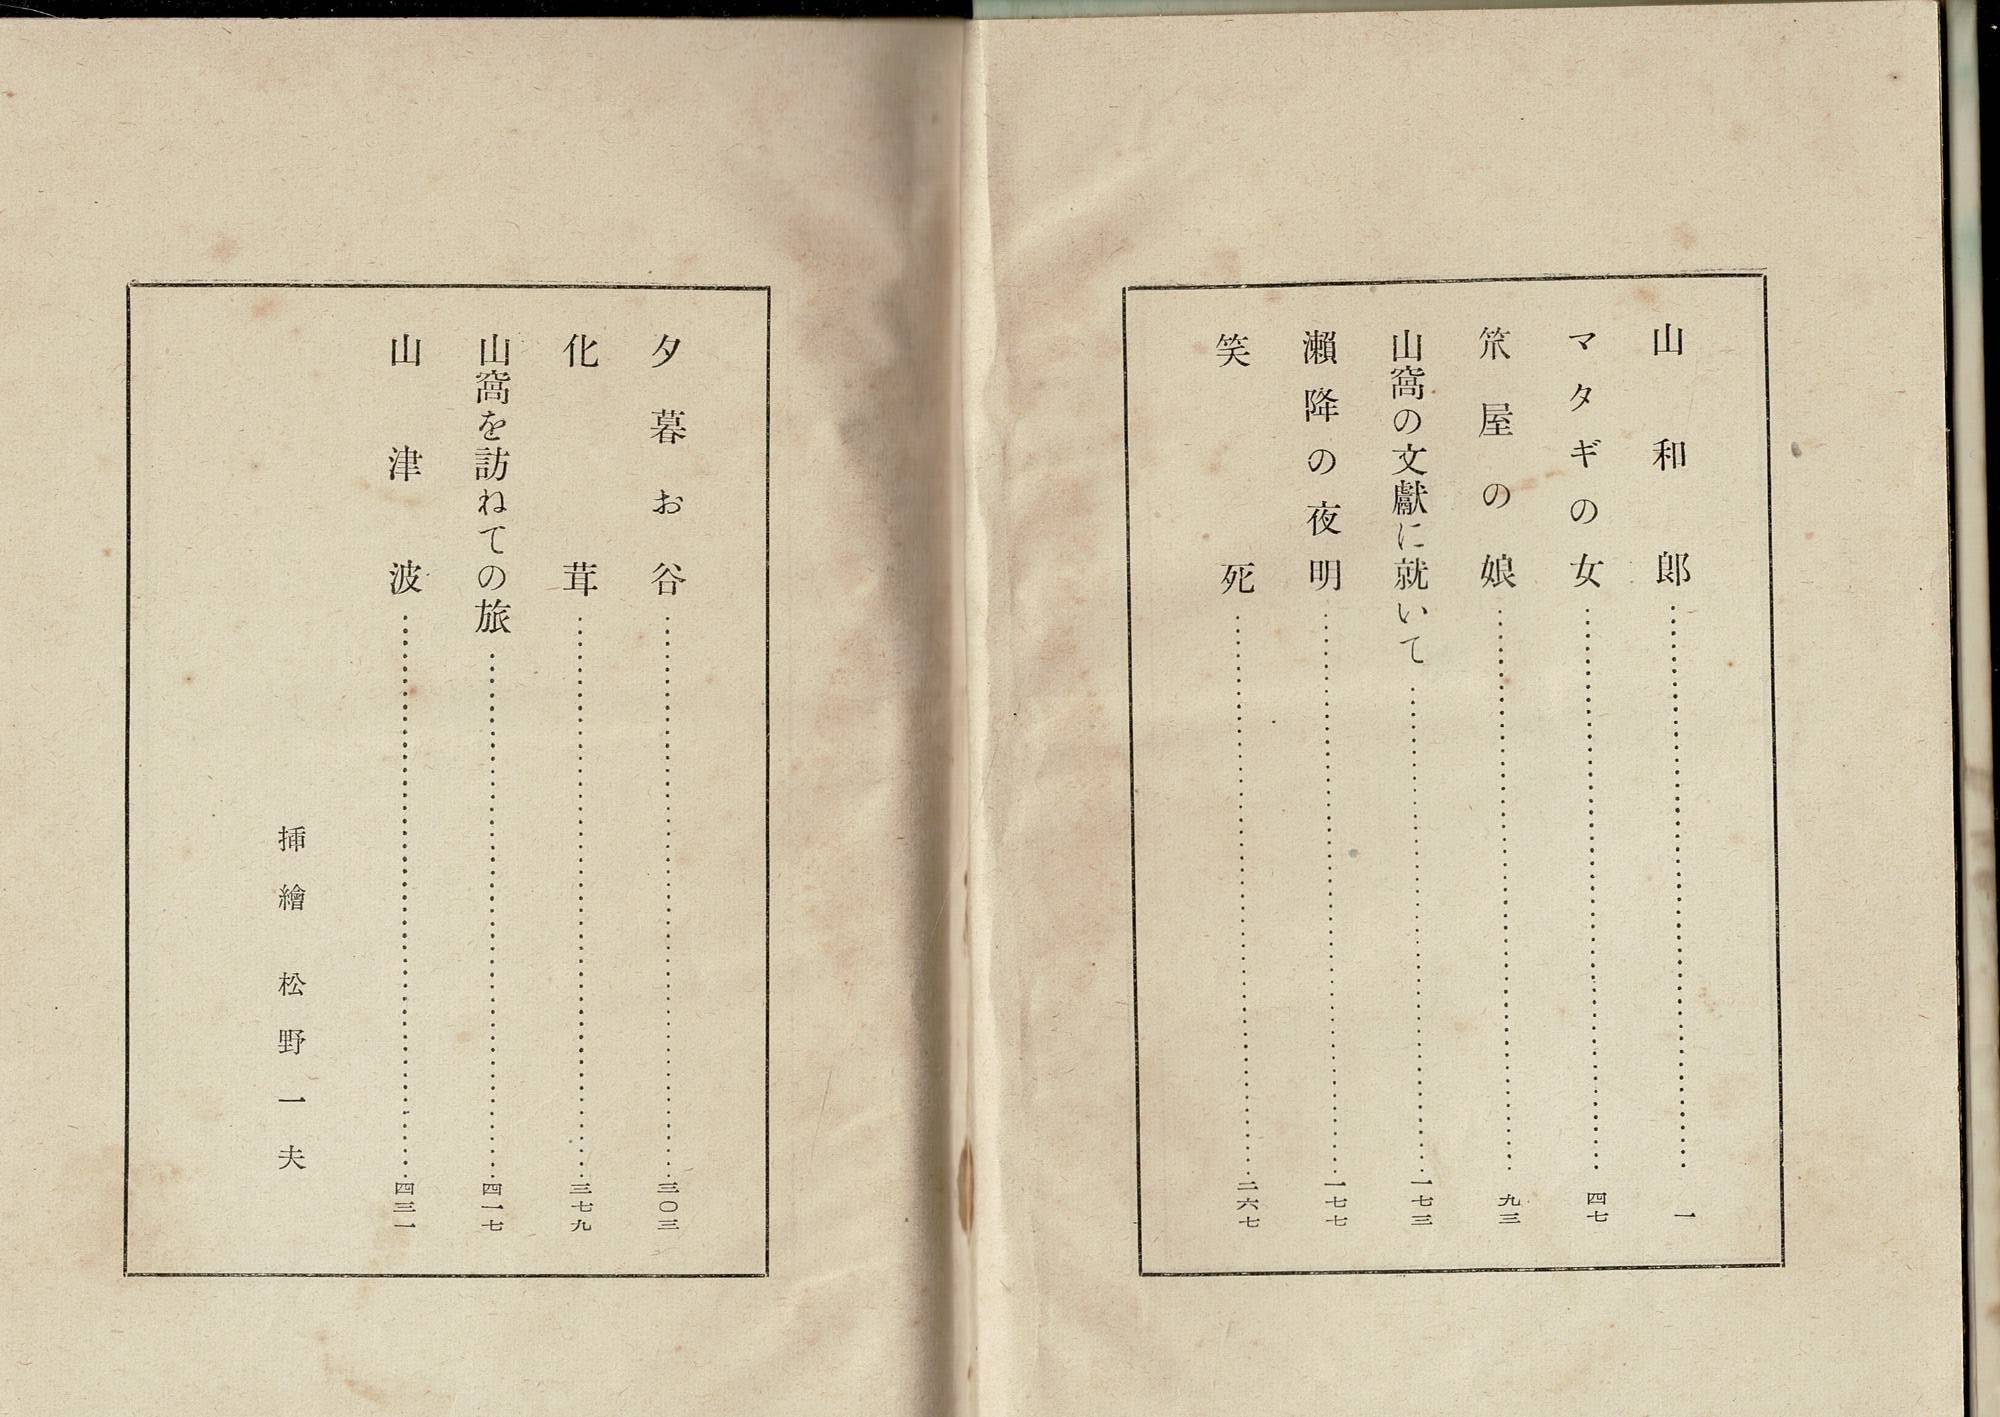 山和郎……一
マタギの女……四七
笊屋の娘……九三
山窩の文獻に就いて……一七三
瀨降の夜明……一七七
笑死……二六七
夕暮お谷……三〇三
化茸……三七九
山窩を訪ねての旅……四一七
山津波……四三一
挿繪 松野一夫